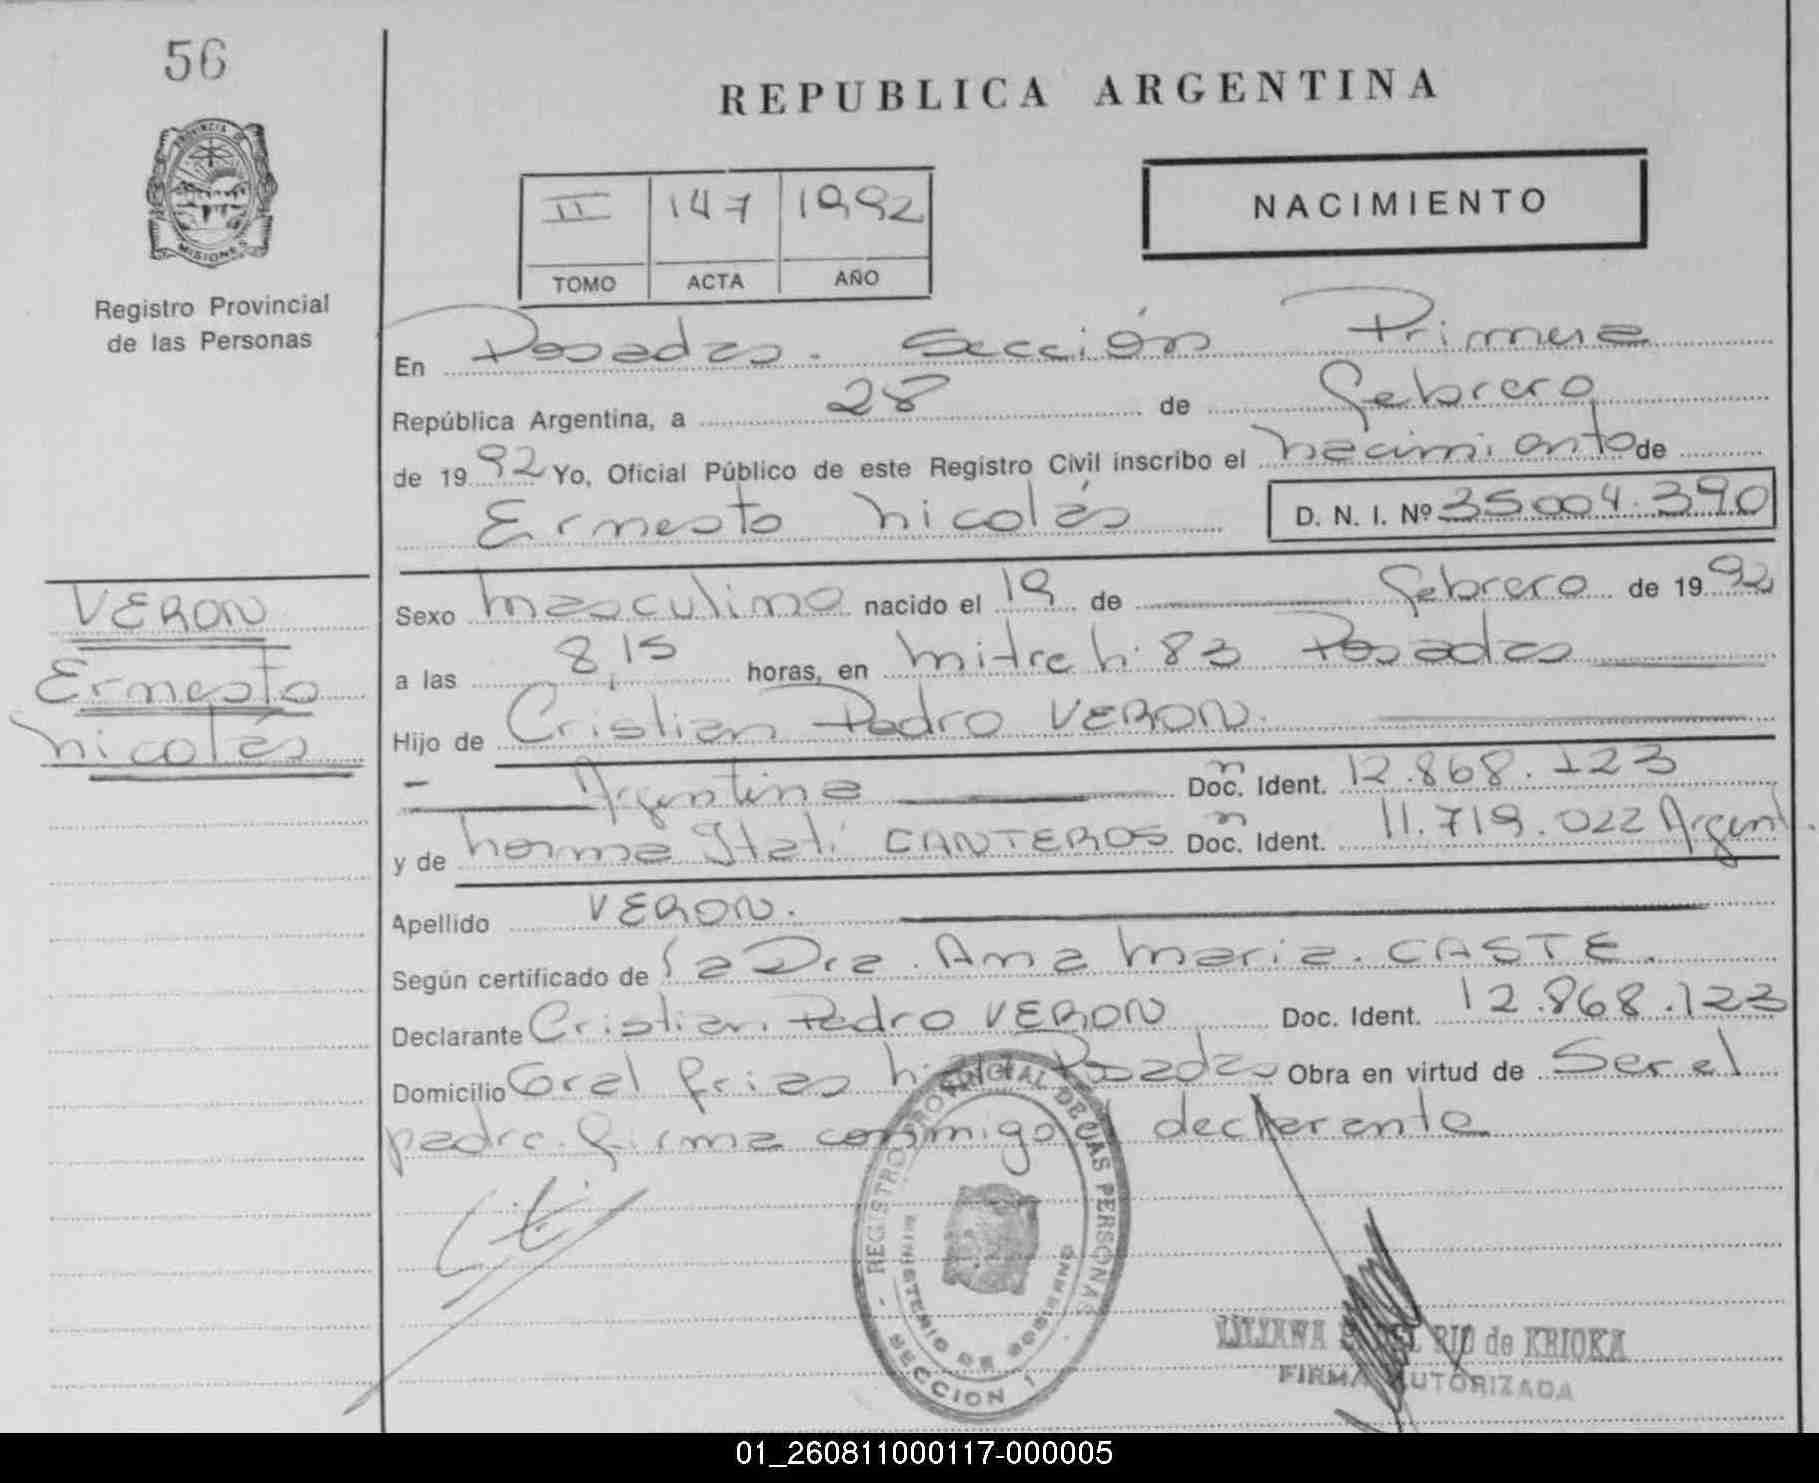 56
REPUBLICA ARGENTINA
PROVINCIA DE
MISIONES
Registro Provincial
de las Personas
II 147 1992
TOMO ACTA AÑO
NACIMIENTO
En Posadas. Sección Primera
República Argentina, a 28 de febrero
de 1992 Yo, Oficial Público de este Registro Civil inscribo el nacimiento de
Ernesto Nicolás D. N. I. Nº 35004.390
VERON
Ernesto
Nicolás
Sexo masculino nacido el 19 de febrero de 1992
a las 8,15 horas, en mitre h. 83 Posadas
Hijo de Cristian Pedro VERON.
Argentina Doc. Ident. 12.868.123
y de Norma Itatí CANTEROS Doc. Ident. 11.719.022 Argent.
Apellido VERON.
Según certificado de la Dra. Ana Maria. CASTE.
Declarante Cristian Pedro VERON Doc. Ident. 12.868.123
Domicilio Gral frias Posadas Obra en virtud de Ser el
padre. firma conmigo el declarante
REGISTRO PROVINCIAL DE LAS PERSONAS
MINISTERIO DE GOBIERNO
SECCION 1
RIO de KRIOKA
FIRMA AUTORIZADA
01_260811000117-000005